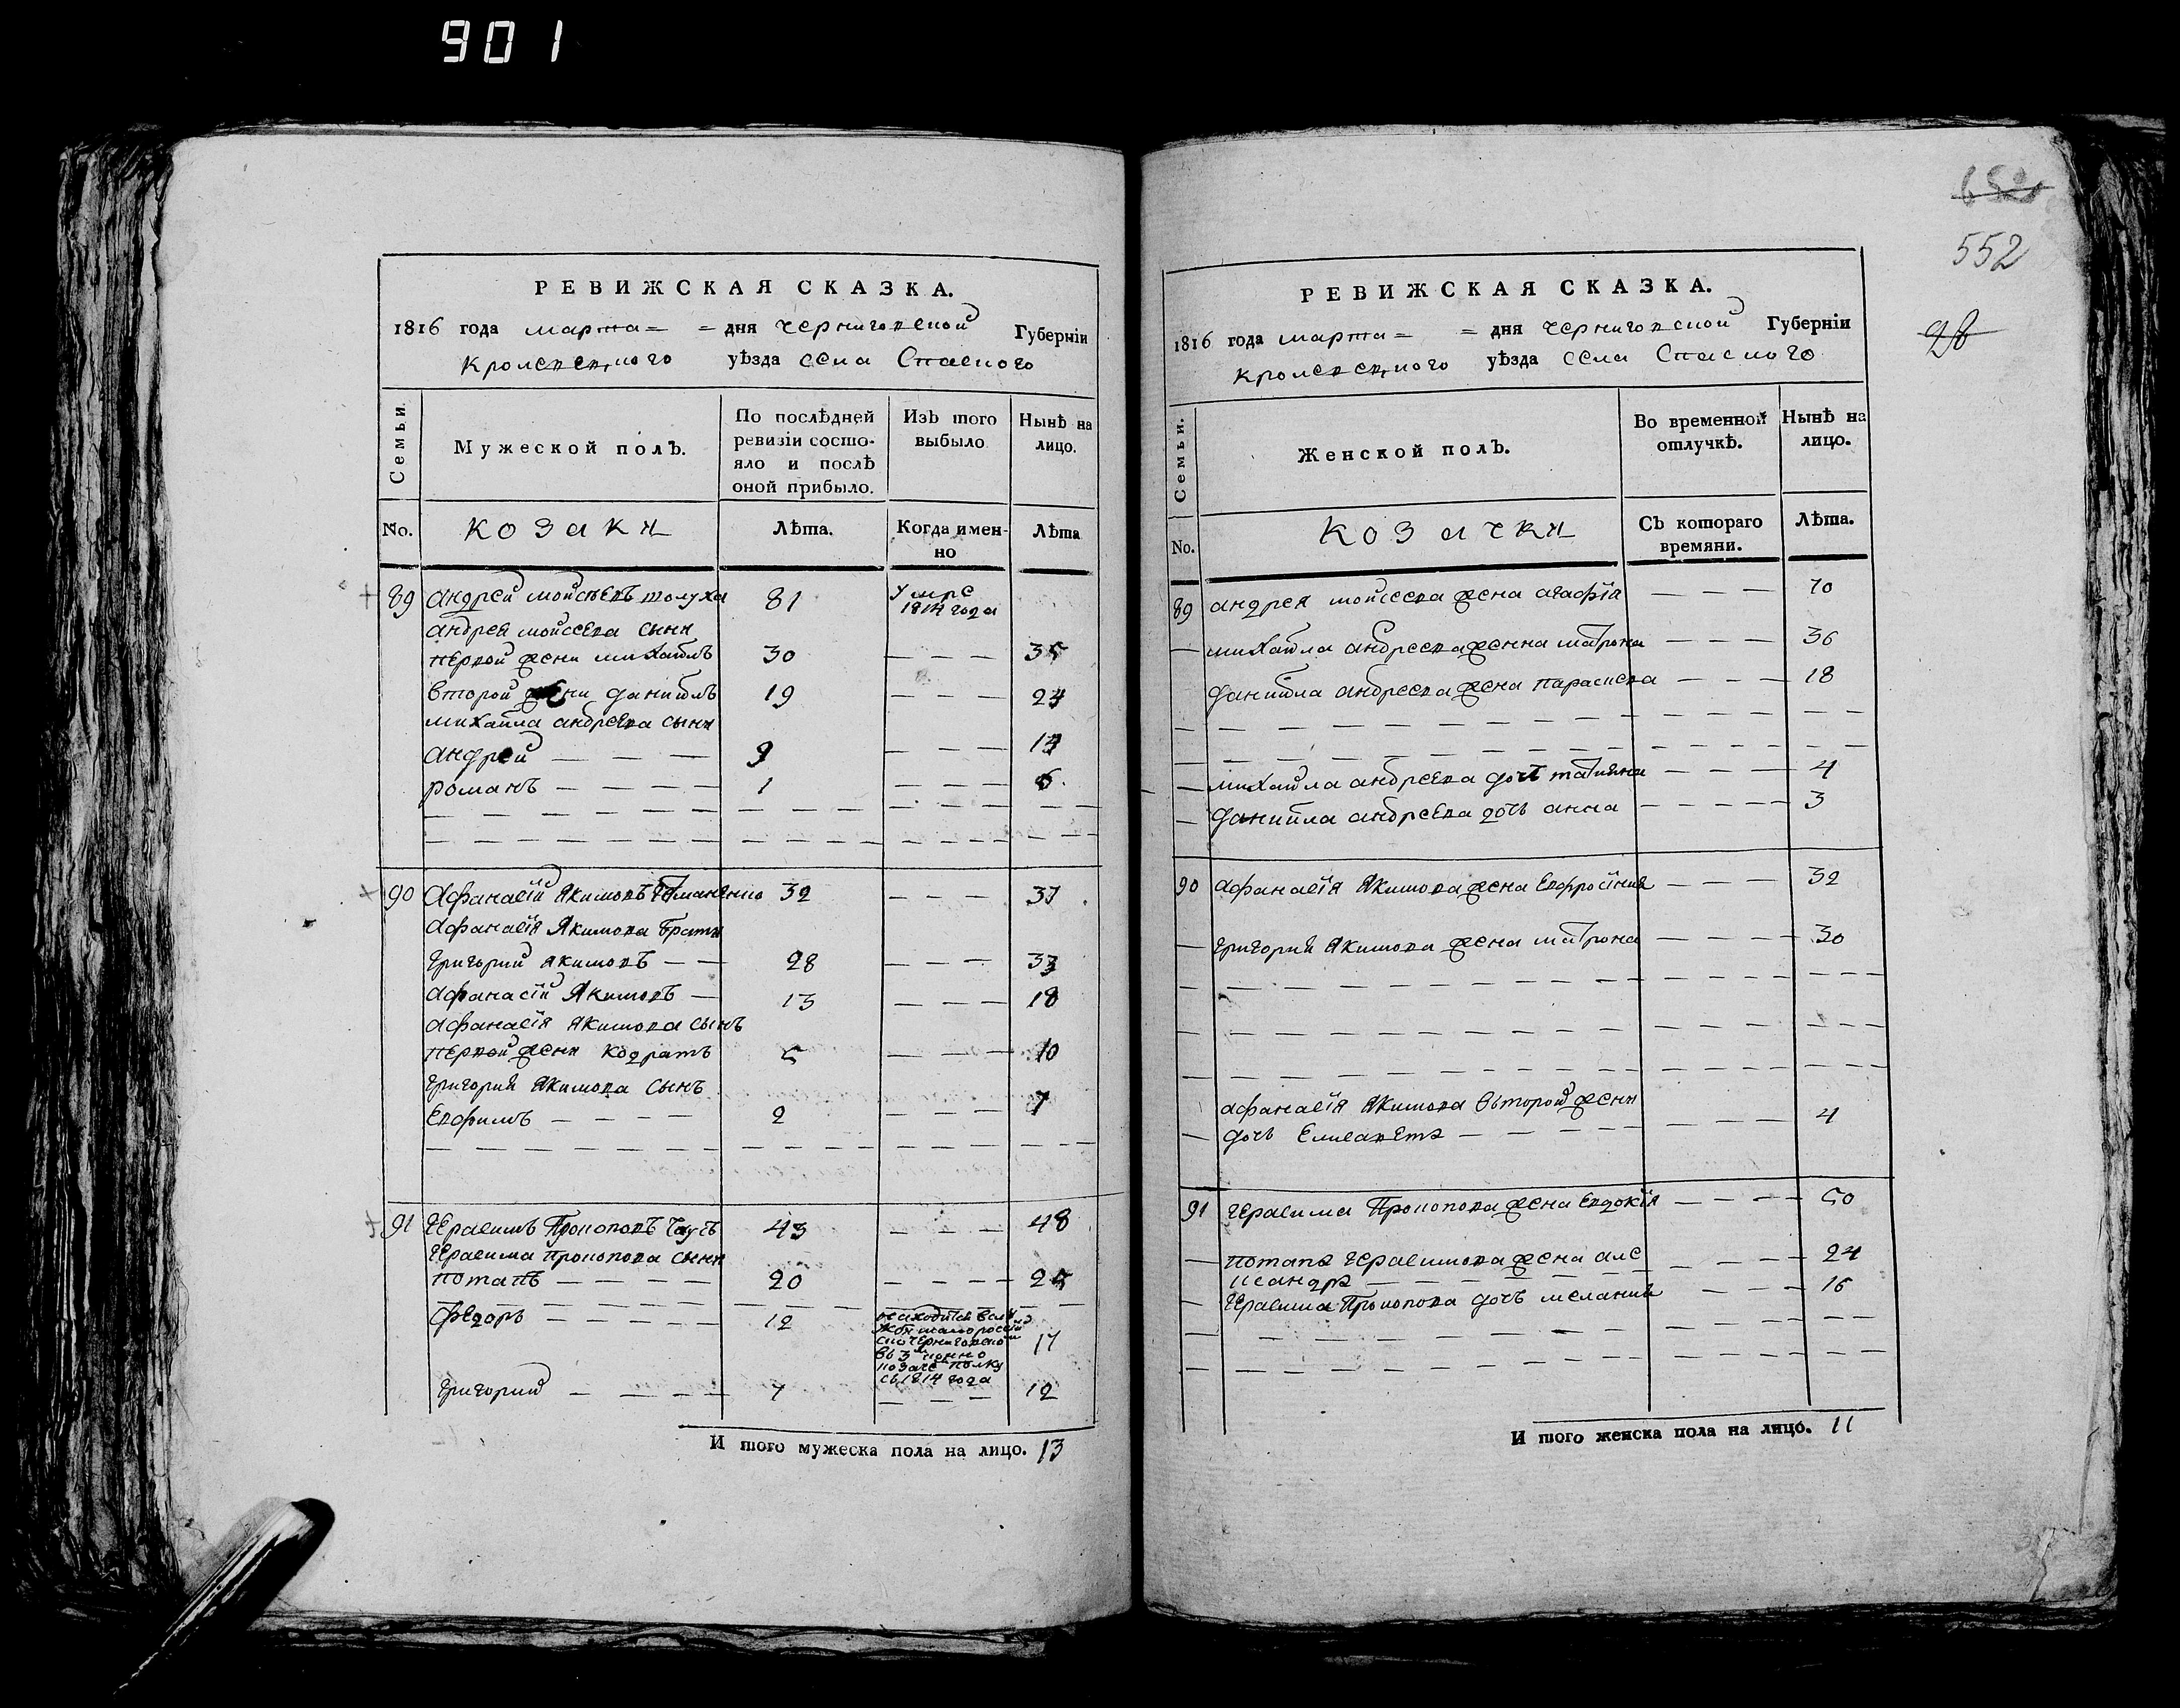 901
652
552
98
РЕВИЖСКАЯ СКАЗКА.
1816 года марта = = дня Черниговской Губерніи
Кролевецкого уѣзда села Спаского
Семьи. Мужеской полъ. По послѣдней ревизіи состояло и послѣ оной прибыло. Изъ того выбыло. Нынѣ на лицо.
No. козаки Лѣта. Когда именно Лѣта
89 андрей мойсѣевъ шолуха 81 умре 1814 года
андрея мойсеева сыни
первой жени михайлъ 30 — — — 35
второй жени данийлъ 19 — — — 24
михайла андреева сыни
андрей — — — 9 — — — 14
романъ — — — — 1 — — — 6
90 Афанасій Якимовъ 32 — — — 37
Афанасія Якимова брати
григорий якимовъ — — 28 — — — 33
Афанасій Якимовъ — 13 — — — 18
Афанасія якимова сынъ
первой жени кодратъ 5 — — — 10
григория якимова сынъ
Евфимъ — — — 2 — — — 7
91 герасимъ Прокоповъ 43 — — — 48
герасима прокопова сыни
потапъ — — — — 20 — — — — 25
федоръ — — — — 12 находится
малоросій
черниговско
въ 3 конно
козаче полку
съ 1814 года 17
григорий — — — — 7 — — — 12
И того мужеска пола на лицо. 13
РЕВИЖСКАЯ СКАЗКА.
1816 года марта = = дня Черниговской Губерніи
Кролевецкого уѣзда села Спаского
Семьи. Женской полъ. Во временной отлучкѣ. Нынѣ на лицо.
No. козачки Съ котораго времяни. Лѣта.
89 андрея мойсеева жена агафія — — — 70
— михайла андреева женна матрона — — — 36
данийла андреева жена параскева — — — 18
— михайла андреева дочъ татияна — — — 4
— данийла андреева дочь анна — — — — 3
90 афанасія якимова жена Евфросіния — — — 32
— григория якимова жена матрона — — — 30
афанасія якимова второй жени
— дочь Елисавета — — — — — — — 4
91 герасима Прокопова жена Евдокія — — — — 50
— потапа герасимова жена александра — — — — 24
— герасима Прокопова дочъ мелания — — — 16
И того женска пола на лицо. 11